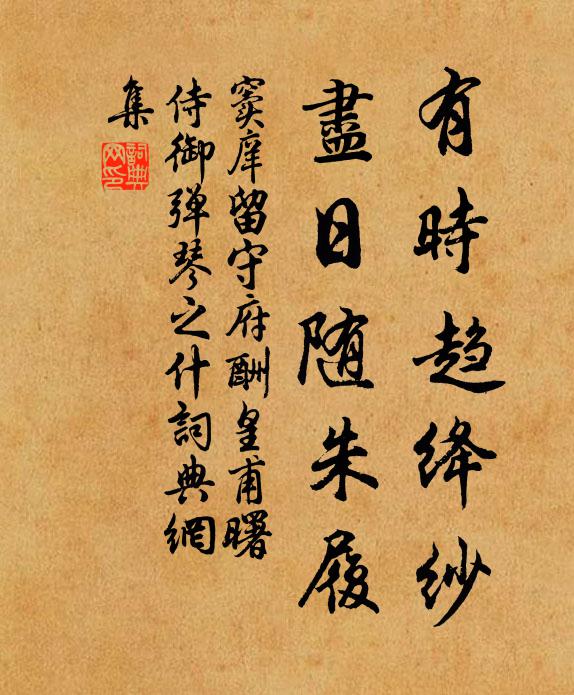 有時趋绛纱
盡日随朱履
窦庠留守府酬皇甫曙
侍御弹琴之什詞典網
集
詞典
网印